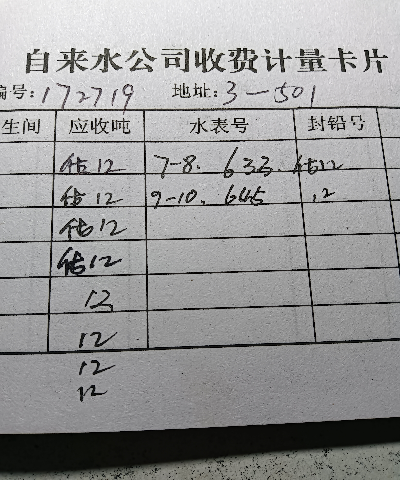 自来水公司收费计量卡片
编号:172719 地址:3-501
生间 应收吨 水表号 封铅号
估12 7-8. 633. 估12
估12 9-10. 645 .12
估12
估12
12
12
12
12